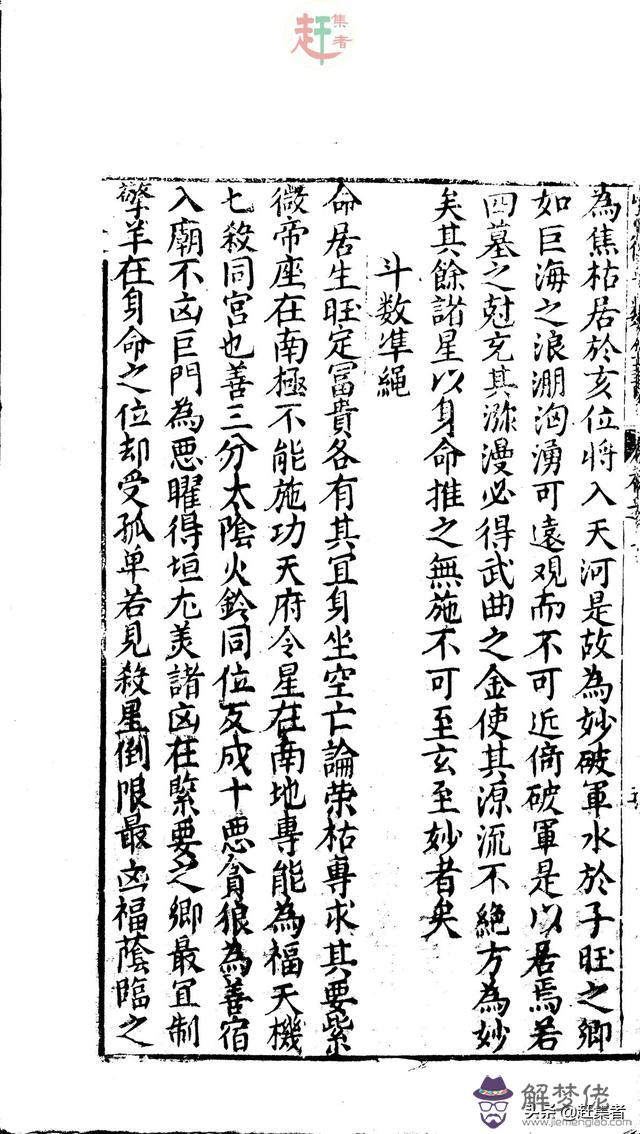 赶集者
為焦枯居於亥位將入天河是故為妙破軍水於子旺之鄉
如巨海之浪淜洶湧可遠观而不可近倚破軍是以居焉若
四墓之尅充其瀰漫必得武曲之金使其源流不絶方為妙
矣其餘諸星以身命推之無施不可至玄至妙者矣
斗数凖繩
命居生旺定冨貴各有其冝身坐空亡論荣枯專求其要紫
微帝座在南極不能施功天府令星在南地專能為福天機
七殺同宮也善三分太陰火鈴同位反成十悪貪狼為善宿
入廟不凶巨門為悪曜得垣尤美諸凶在緊要之鄉最冝制
擎羊在身命之位却受孤单若見殺星倒限最凶福蔭臨之
解梦佬
头条@赶集者
www.jiemenglao.com